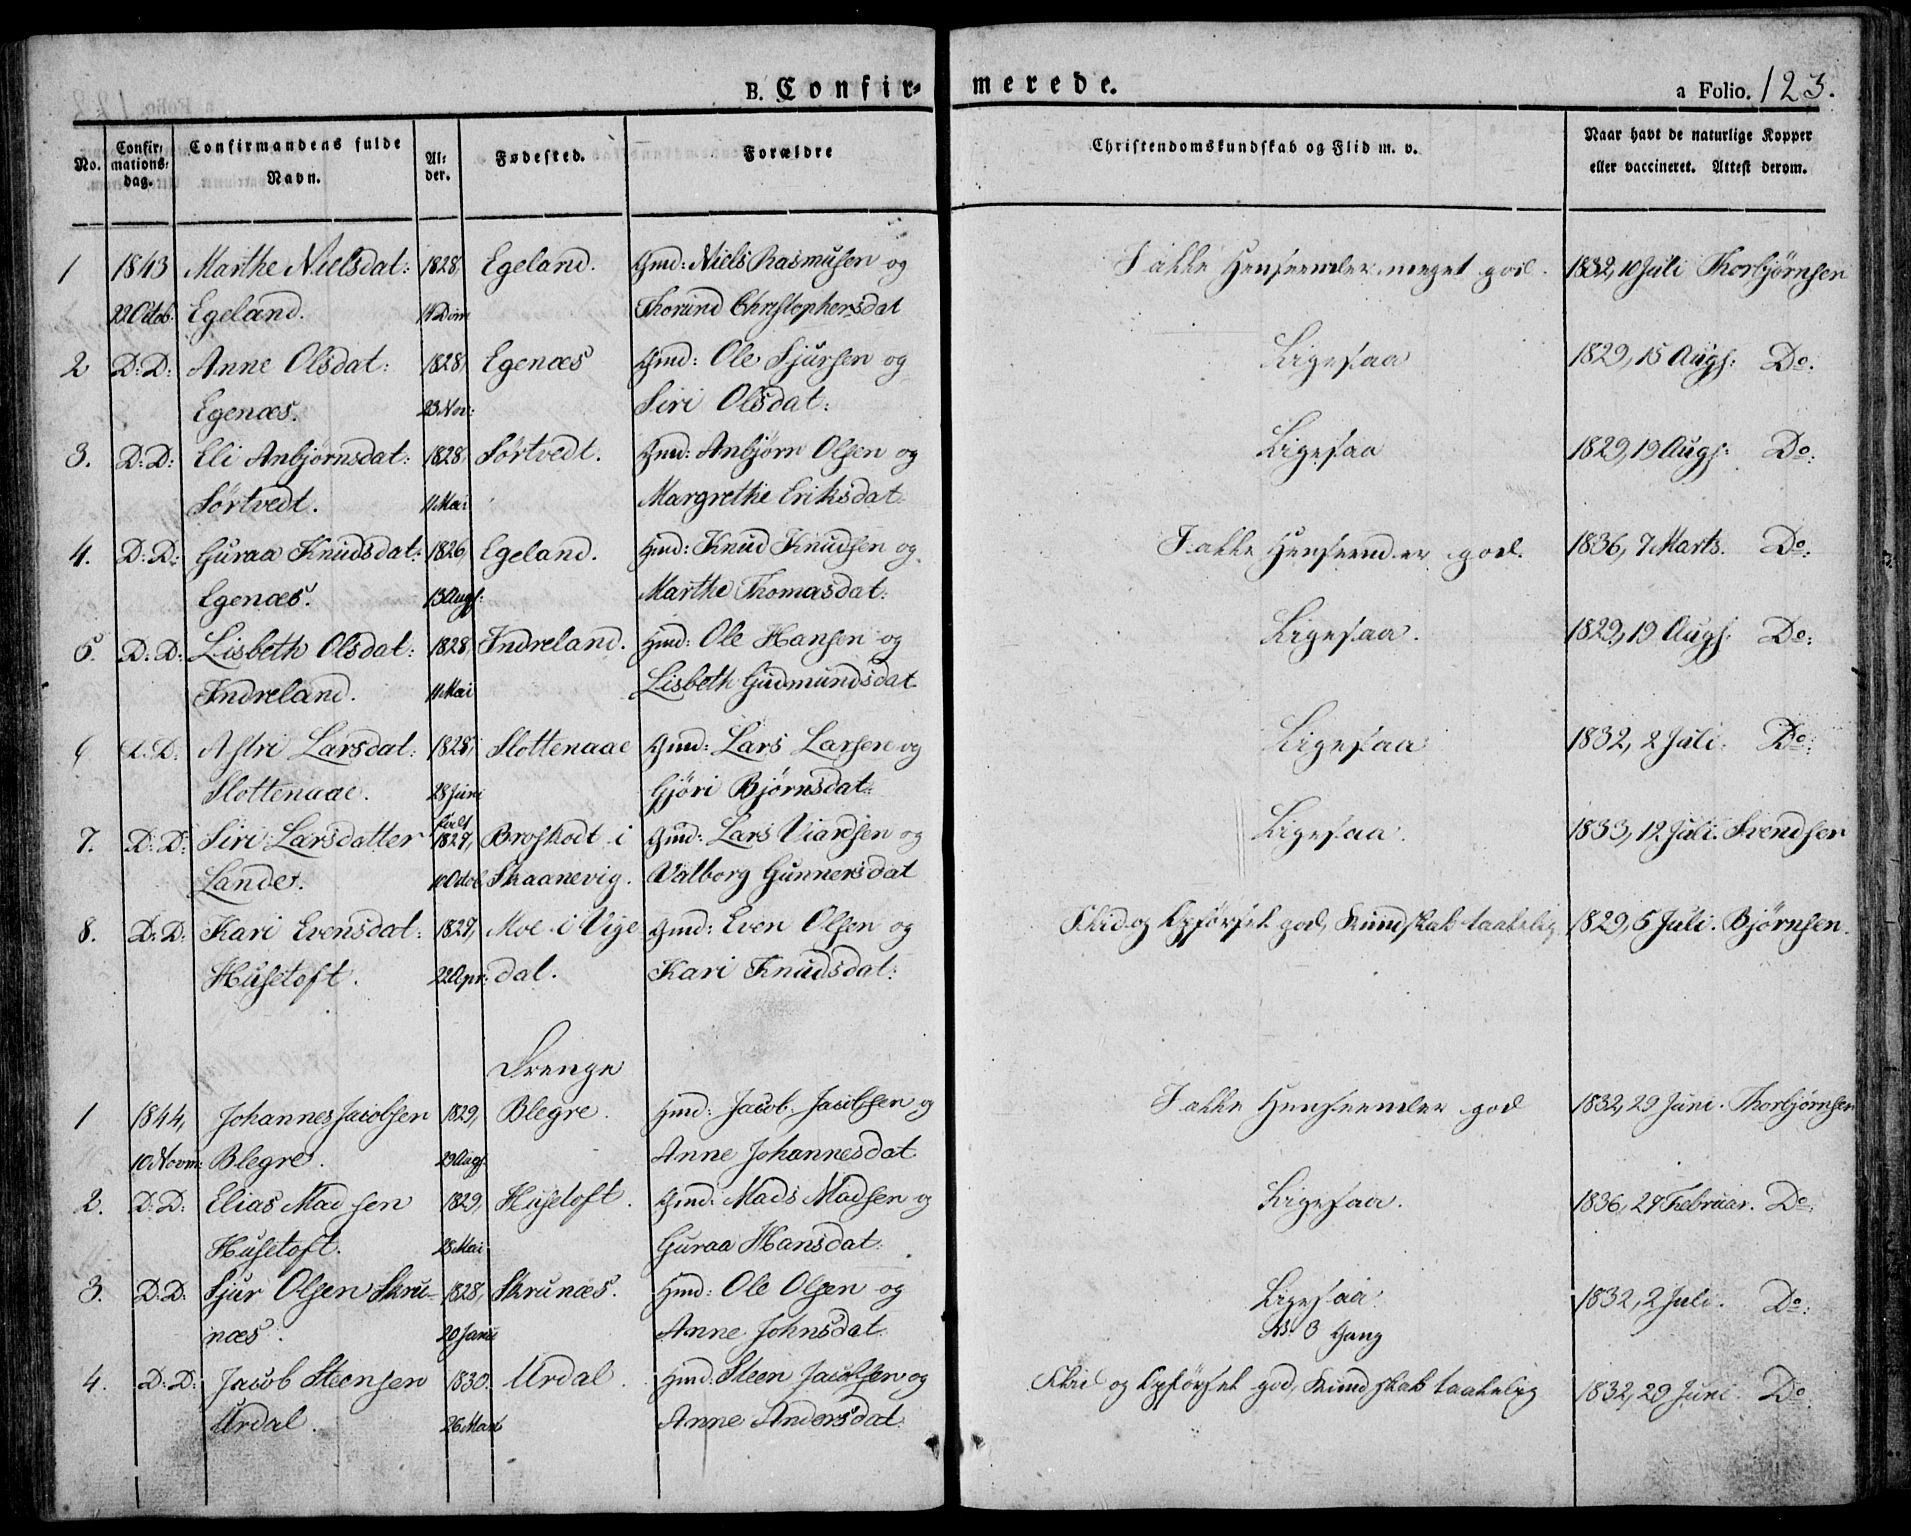 B. Confir- merede.
a Folio. 123.
No. Confir-mations-dag. Confirmandens fulde Navn. Al-der. Fødested. Forældre Christendomskundskab og Flid m. v. Naar havt de naturlige Kopper eller vaccineret. Attest derom.
1 1843 Marthe Nielsdat: 1828, Egeland. Gmd: Niels Rasmusen og I alle Henseender meget god. 1832, 10 Juli Thorbjørnsen
22 Octob. Egeland. Thorund Christophersdat
2 D: D: Anne Olsdat: 1828, Egenæs Gmd: Ole Sjursen og Ligesaa 1829, 15 Augs: Do.
Egenæs. 23 Nov: Siri Olsdat:
3. D: D: Eli Anbjørnsdat: 1828 Sørtvedt. Gmd: Anbjørn Olsen og Ligesaa 1829, 19 Augs: Do:
Sørtvedt. 11 Mai Margrethe Eriksdat
4. D: D: Guraa Knudsdat: 1826, Egeland. Hmd: Knud Knudsen og I alle Henseender god. 1836, 7 Marts. Do:
Egenæs. 13 Augs: Marthe Thomasdat:
5. D: D: Lisbeth Olsdat: 1828, Indreland. Hmd: Ole Hansen og Ligesaa. 1829, 19 Augs: Do:
Indreland. 11 Mai Lisbeth Gudmundsdat
6 D: D: Astri Larsdat: 1828, Slottenaae Gmd: Lars Larsen og Ligesaa 1832, 2 Juli. Do:
Slottenaae. 28 Juni Gjøri Bjørnsdat:
7. D: D: Siri Larsdatter 1827, Broshodt i Gmd: Lars Viardsen og Ligesaa. 1833, 12 Juli. Svendsen
Lande. Octob. Skaanevig. Valborg Gunnersdat
8. D: D: Kari Evensdat: 1827, Moe i Vige Gmd: Even Olsen og Flid og Opførsel god, Kundskab taalelig 1829, 5 Juli. Bjørnsen.
Husetoft. 22 Apr: dal. Kari Knudsdat:
Drenge
1 1844, Johannes Jacobsen 1829, Blegre. Hmd: Jacob Jacobsen og I alle Henseender god 1832, 29 Juni. Thorbjørnsen
10 Novm: Blegre. 29 Augs: Anne Johannesdat
2. D: D: Elias Madsen 1829, Husetoft. Gmd: Mads Madsen og Ligesaa. 1836, 27 Februar. Do:
Husetoft. 28 Mai Guraa Hansdat:
3. D: D: Sjur Olsen Skru- 1828, Skrunæs. Hmd: Ole Olsen og Ligesaa 1832, 2 Juli. Do:
næs. 20 Janu Anne Johnsdat: 3 Gang
4. D: D: Jacob Steensen 1830. Urdal. Hmd: Steen Jacobsen og Flid og Opførsel god, Kundskab taalelig 1832, 29 Juni. Do
Urdal. 26 Anne Andersdat: